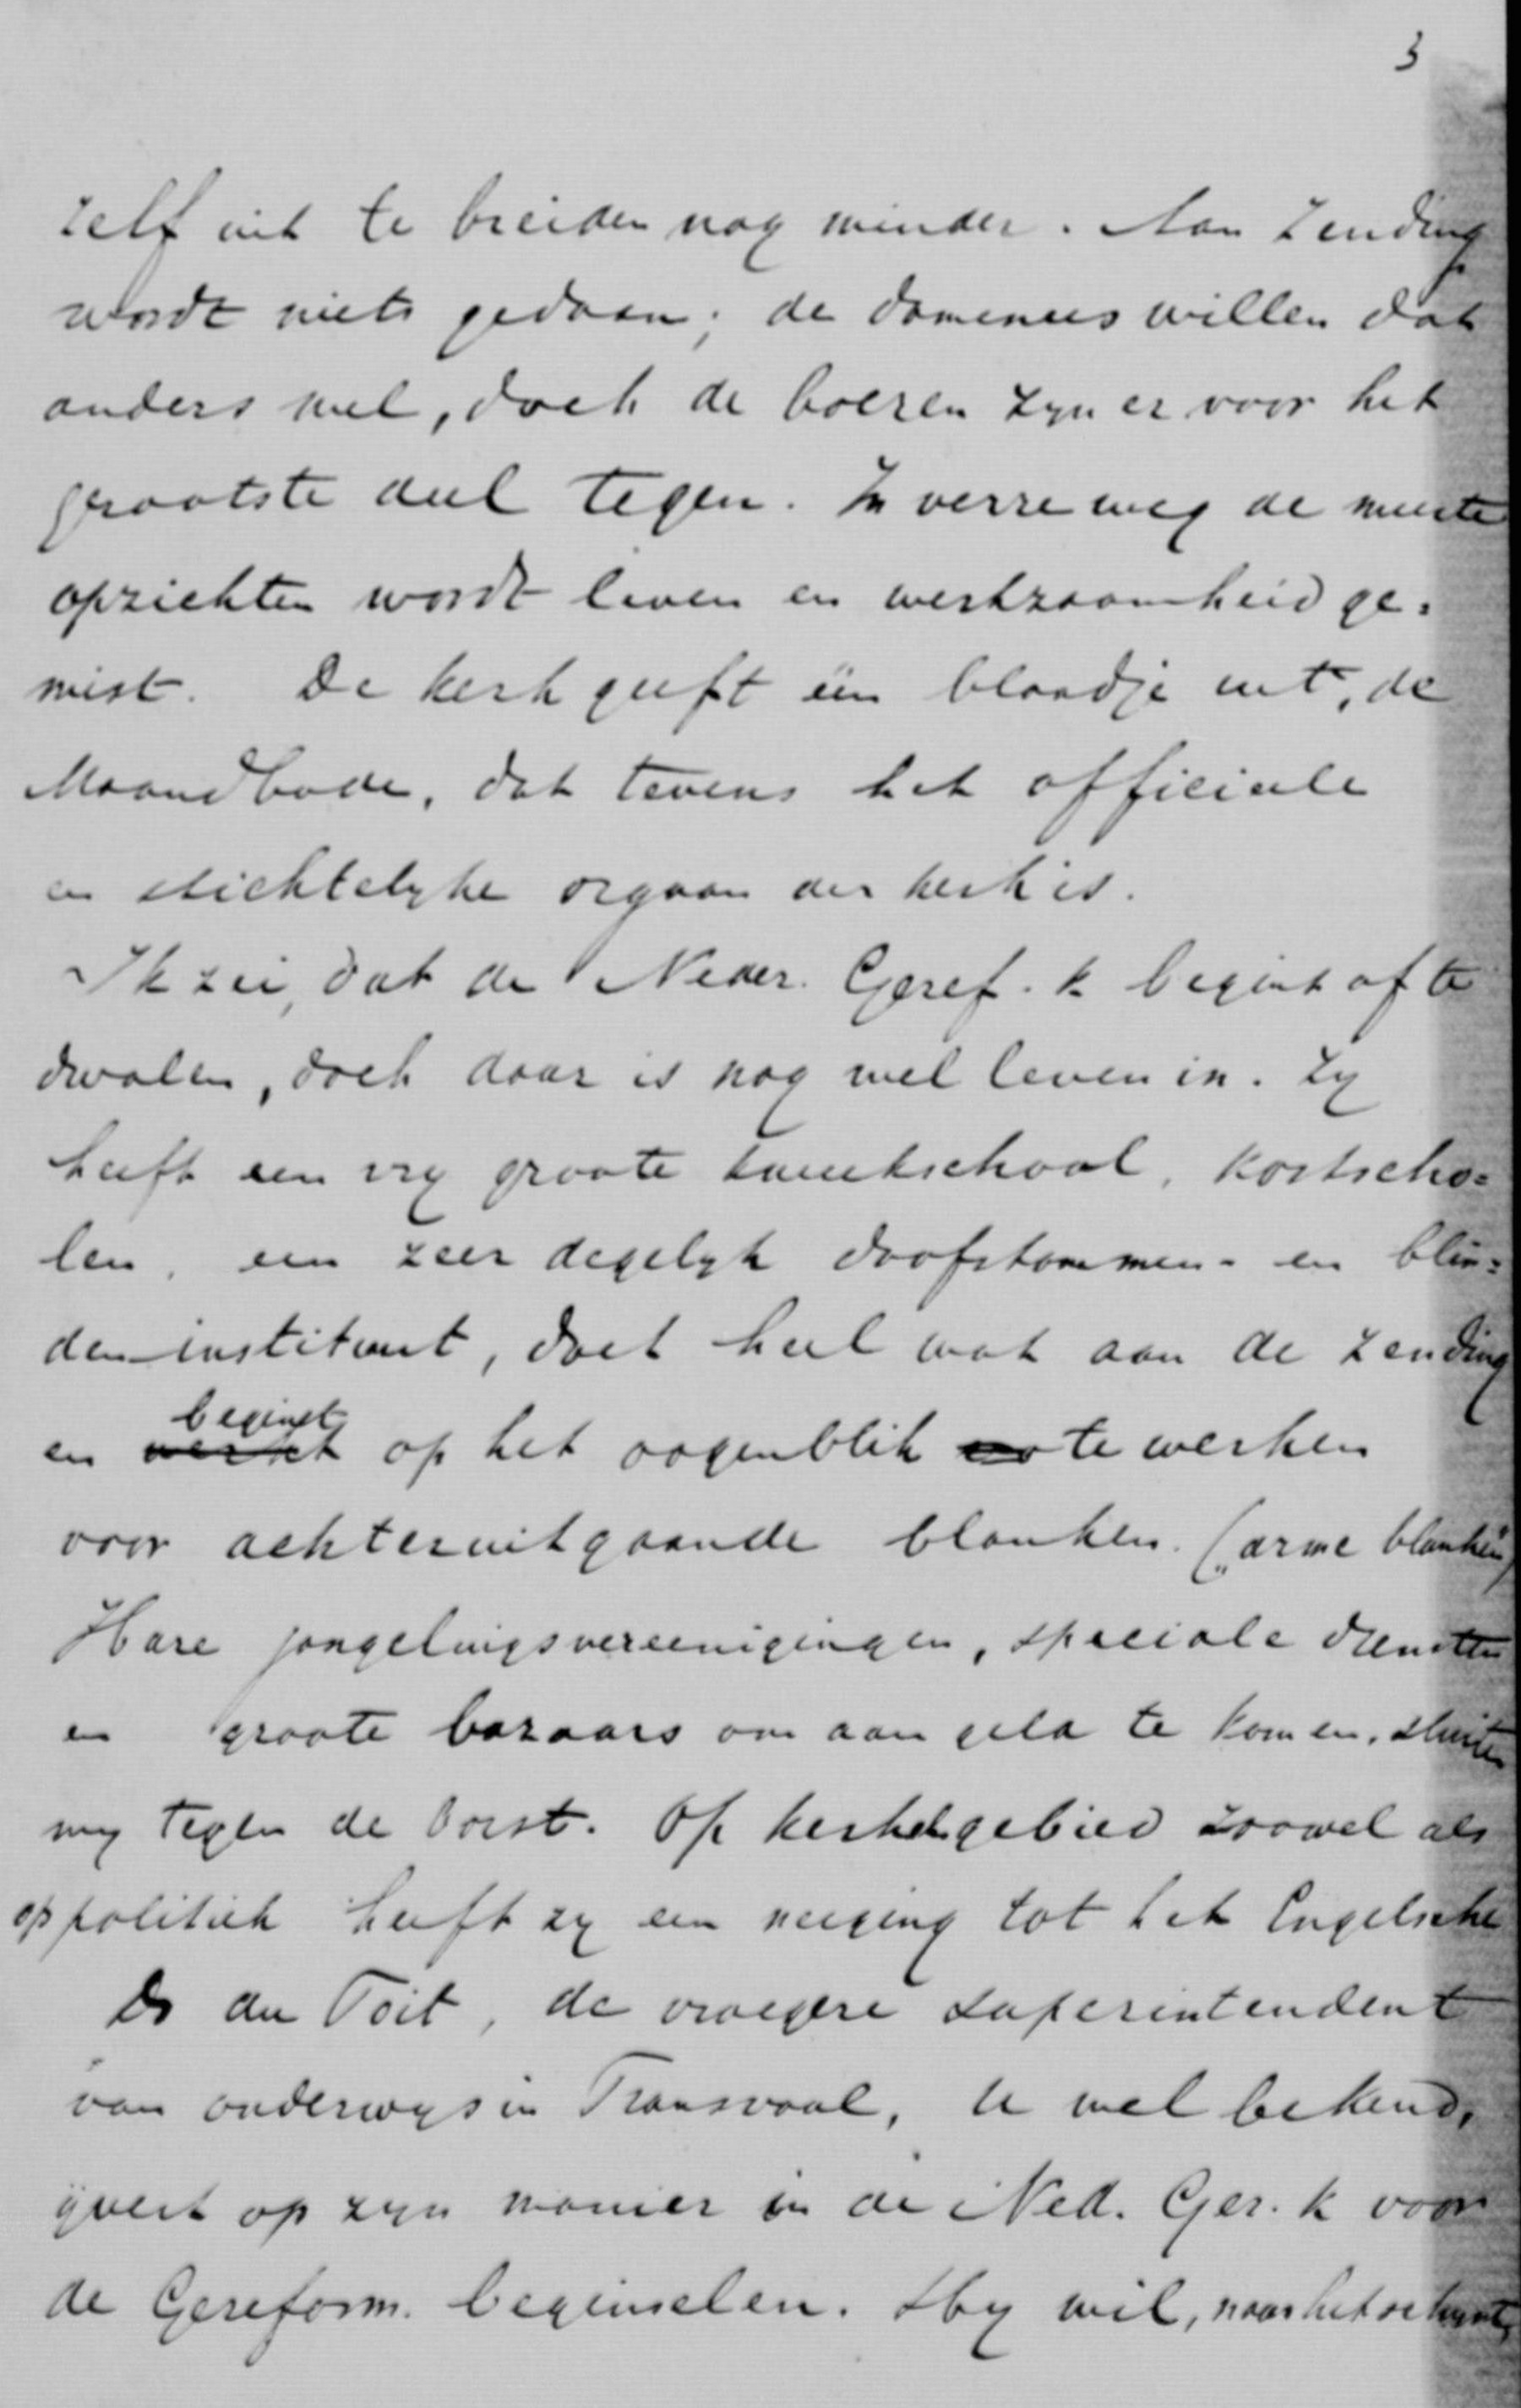 3
zelf uit te breiden nog minder. Aan Zending
wordt niets gedaan; de domenees willen dat
anders wel, doch de boeren zyn er voor het
grootste deel tegen. In verre weg de meeste
opzichten wordt leven en werkzaamheid ge-
mist. De kerk geeft één blaadje uit, de
Maandbode, dat tevens het officieele
en stichtelyke orgaan der kerk is.
Ik zei, dat de Neder. Geref. k begint af te
dwalen, doch daar is nog wel leven in. Zy
heeft een vry groote kweekschool, kostscho=
len, een zeer degelyk doofstommen- en blin=
den-instituut, doet heel wat aan de zending
begint
en werkt op het oogenblik te werken
voor achteruitgaande blanken. („arme blanken")
Hare jongelingsvereenigingen, speciale diensten
en groote bazaars om aan geld te komen, stuiten
my tegen de borst. Op kerkelgebied zoowel als
op politiek heeft zy een neiging tot het Engelsche
Ds du Toit, de vroegere superintendent
van onderwys in Transvaal, U wel bekend,
yvert op zyn manier in de Ned. Ger. k voor
de Gereform. beginselen. Hy wil, naar het schynt,